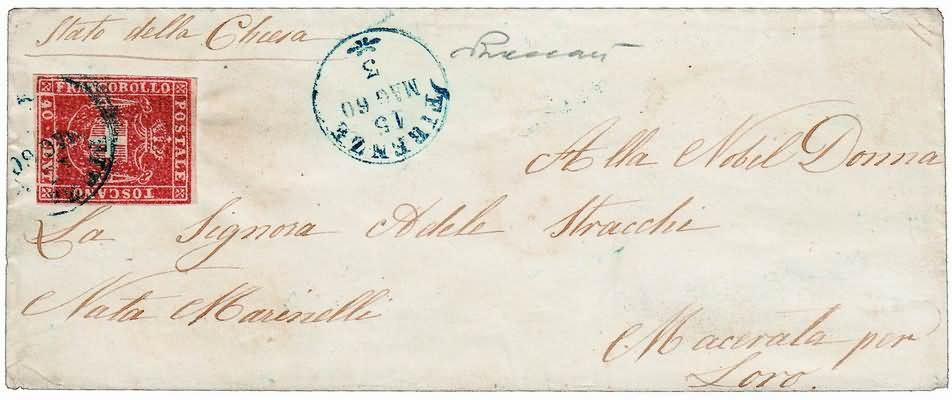 Stato della Chiesa
FRANCOBOLLO
POSTALE
TOSCANO
40
FIRENZE
5
MAG 60
15
Alla Nobil Donna
La Signora Adele Stracchi
Nata Marinelli
Macerata per
Loro.